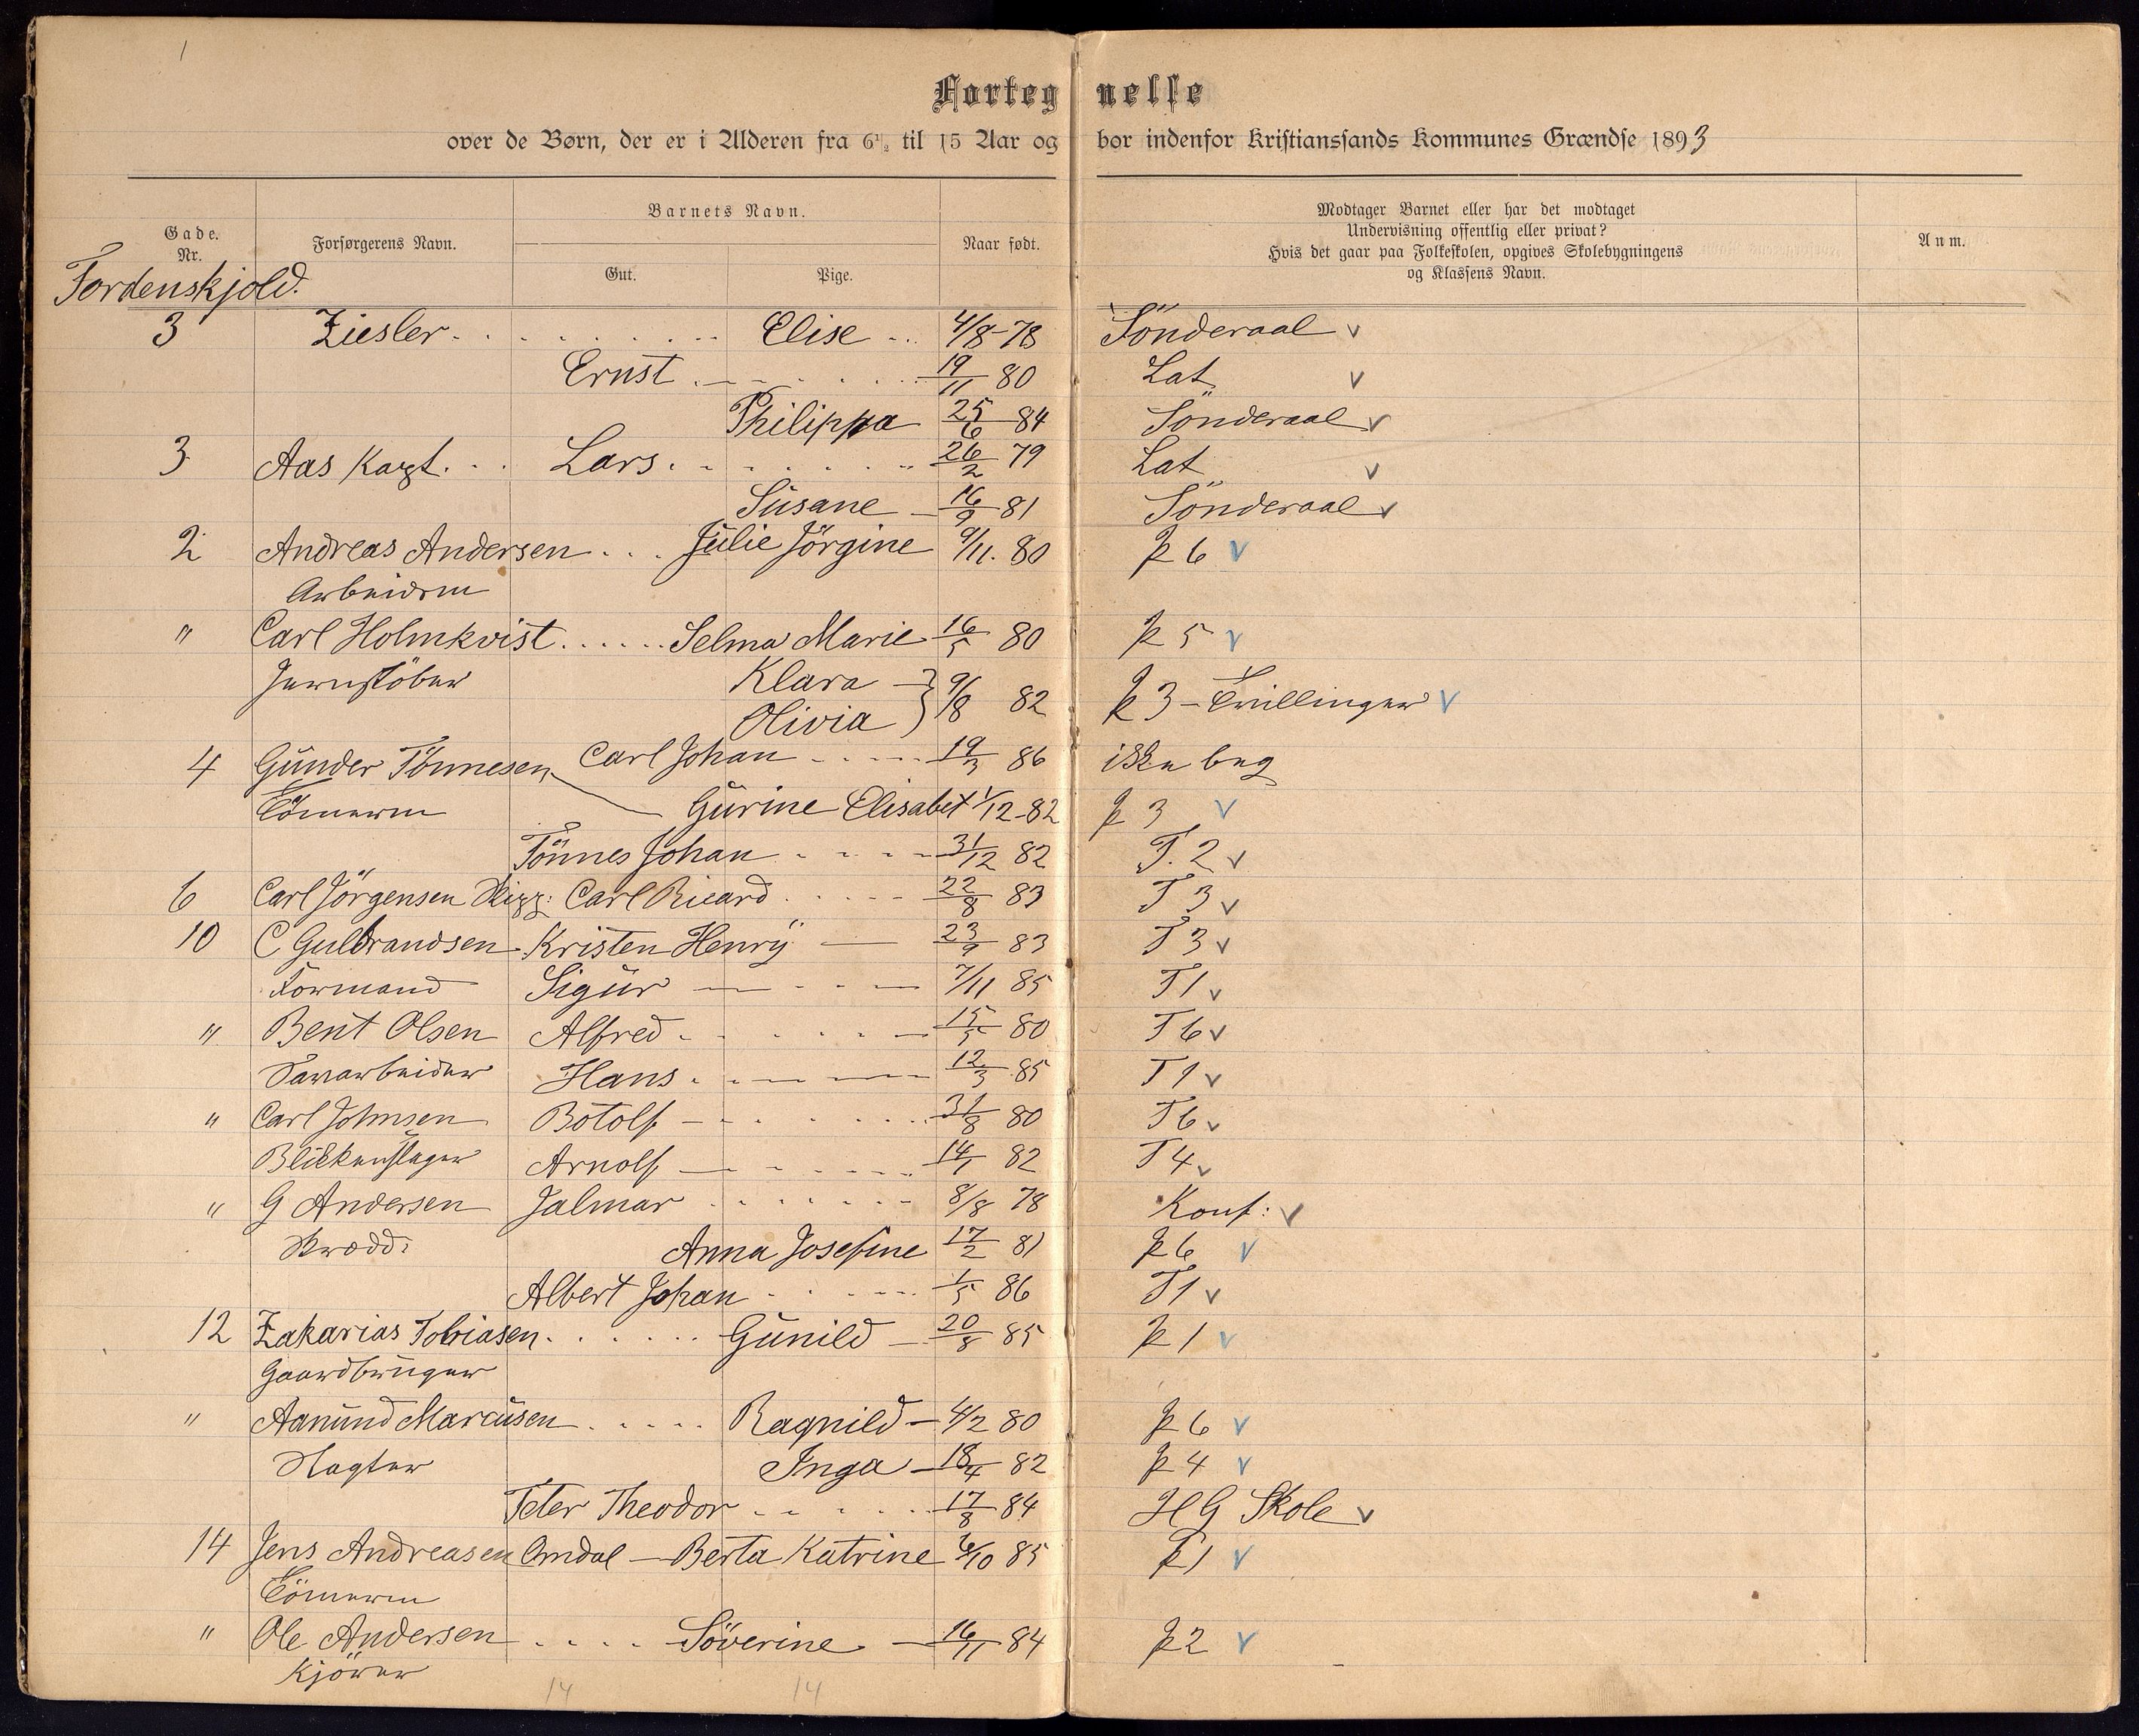 1
Forteg nelse
over de Børn, der er i Alderen fra 6½ til 15 Aar og bor indenfor Kristianssands Kommunes Grændse 1893
Gade. Nr. Forsørgerens Navn. Barnets Navn. Gut. Pige. Naar født. Modtager Barnet eller har det modtaget Undervisning offentlig eller privat? Hvis det gaar paa Folkeskolen, opgives Skolebygningens og Klassens Navn. Anm.
Tordenskjold.
3 Ziesler Elise 4/8-78 Sönderaal v
Ernst 19/11 80 Lat v
Philippa 25/6 84 Sönderaal v
3 Aas Kapt. Lars 26/2 79 Lat v
Susane 16/9 81 Sönderaal v
2 Andreas Andersen Julie Jörgine 9/11. 80 p 6 v
Arbeidsm
" Carl Holmkvist Selma Marie 16/5 80 p 5 v
Jernstöber Klara
Olivia } 9/8 82 p 3 - Tvillinger v
4 Gunder Tönnesen Carl Johan 19/3 86 ikke beg
Tömerm Gurine Elisabet 1/12-82 p 3 v
Tönnes Johan 31/12 82 T. 2 v
6 Carl Jörgensen Skipp: Carl Ricard 22/8 83 T 3 v
10 C Gulbrandsen Kristen Henry 23/9 83 T 3 v
Formand Sigur 7/11 85 T 1 v
" Bent Olsen Alfred 15/5 80 T 6 v
Savarbeider Hans 12/3 85 T 1 v
" Carl Johnsen Botolf 31/8 80 T 6 v
Blikkenslager Arnolf 14/1 82 T 4 v
" G Andersen Jalmar 8/8 78 Konf: v
Skrædd: Anna Josefine 17/2 81 p 6 v
Albert Johan 1/5 86 T 1 v
12 Zakarias Tobiasen Gunild 20/8 85 p 1 v
Gaardbruger
" Aanund Marcusen Ragnild 4/2 80 p 6 v
Slagter Inga 18/4 82 p 4 v
Peter Theodor 17/8 84 H G Skole v
14 Jens Andreasen Omdal Berta Katrine /10 85 p 1 v
Tömerm
" Ole Andersen Söverine 16/11 84 p 2 v
Kjörer
14 14